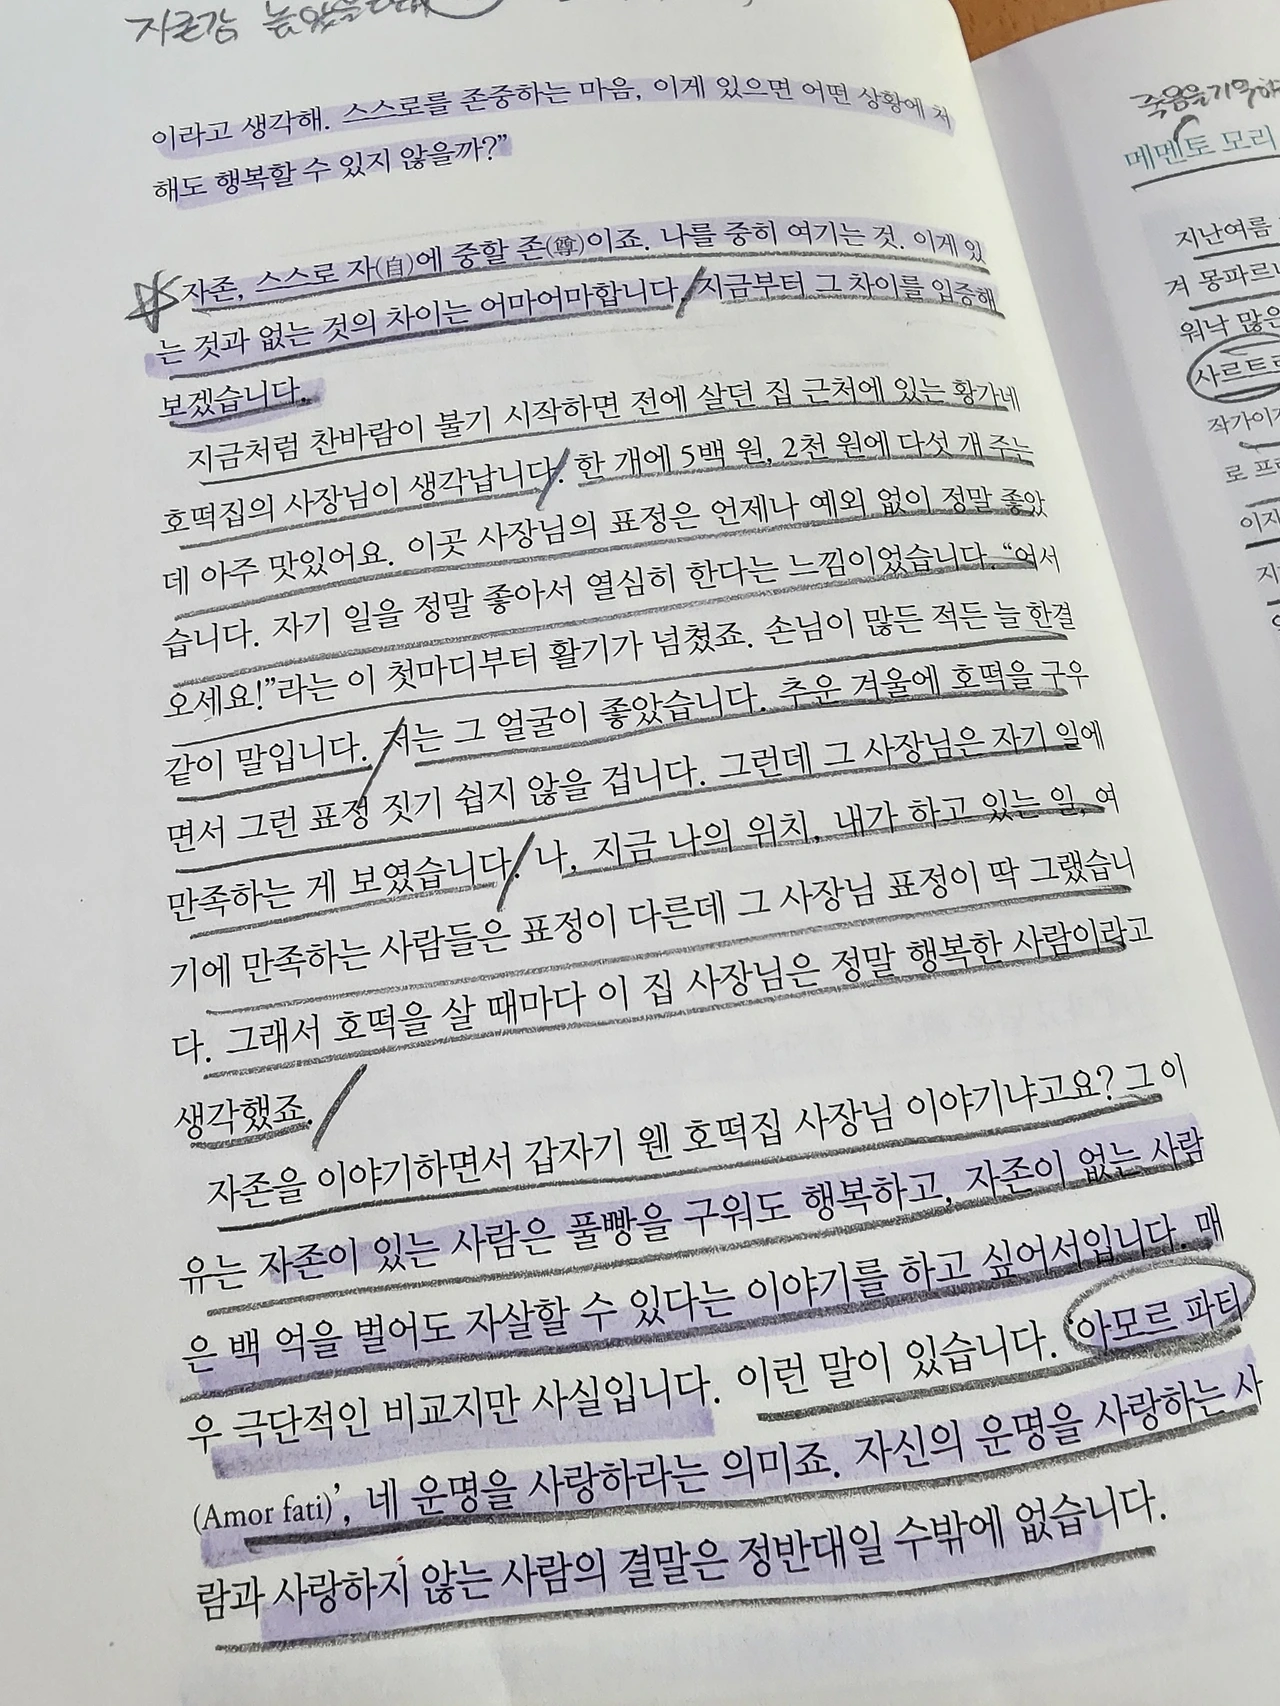 자존감
이라고 생각해. 스스로를 존중하는 마음, 이게 있으면 어떤 상황에 처
해도 행복할 수 있지 않을까?”
자존, 스스로 자(自)에 중할 존(尊)이죠. 나를 중히 여기는 것. 이게 있
는 것과 없는 것의 차이는 어마어마합니다. 지금부터 그 차이를 입증해
보겠습니다.
지금처럼 찬바람이 불기 시작하면 전에 살던 집 근처에 있는 황가네
호떡집의 사장님이 생각납니다. 한 개에 5백 원, 2천 원에 다섯 개 주는
데 아주 맛있어요. 이곳 사장님의 표정은 언제나 예외 없이 정말 좋았
습니다. 자기 일을 정말 좋아서 열심히 한다는 느낌이었습니다. “어서
오세요!”라는 이 첫마디부터 활기가 넘쳤죠. 손님이 많든 적든 늘 한결
같이 말입니다. 저는 그 얼굴이 좋았습니다. 추운 겨울에 호떡을 구우
면서 그런 표정 짓기 쉽지 않을 겁니다. 그런데 그 사장님은 자기 일에
만족하는 게 보였습니다. 나, 지금 나의 위치, 내가 하고 있는 일, 여
기에 만족하는 사람들은 표정이 다른데 그 사장님 표정이 딱 그랬습니
다. 그래서 호떡을 살 때마다 이 집 사장님은 정말 행복한 사람이라고
생각했죠.
자존을 이야기하면서 갑자기 웬 호떡집 사장님 이야기냐고요? 그 이
유는 자존이 있는 사람은 풀빵을 구워도 행복하고, 자존이 없는 사람
은 백 억을 벌어도 자살할 수 있다는 이야기를 하고 싶어서입니다. 매
우 극단적인 비교지만 사실입니다. 이런 말이 있습니다. ‘아모르 파티
(Amor fati)’, 네 운명을 사랑하라는 의미죠. 자신의 운명을 사랑하는 사
람과 사랑하지 않는 사람의 결말은 정반대일 수밖에 없습니다.
죽음을 기억하
메멘토 모리
지난여름
겨 몽파르
워낙 많은
사르트르
작가이자
로 프
이지
지